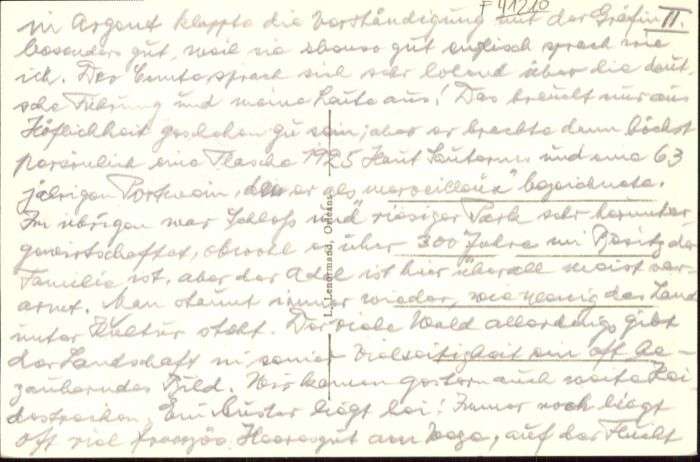 F 41210
II.
in Argent klappte die Verständigung mit der Gräfin
besonders gut, weil sie ebenso gut englisch sprach wie
ich. Der Comte sprach sich sehr lobend über die deut-
sche Führung und meine Leute aus! Das braucht nur aus
Höflichkeit geschehen zu sein; aber er brachte dann höchst
persönlich eine Flasche 1925 Haut Sauternes und eine 63
jährigen Portwein, den er als "merveilleux" bezeichnete.
Im übrigen war Schloß und riesiger Park sehr herunter
gewirtschaftet, obwohl er über 300 Jahre im Besitz der
Familie ist, aber der Adel ist hier überall meist ver-
armt. Man staunt immer wieder, wie wenig das Land
unter Kultur steht. Der viele Wald allerdings gibt
der Landschaft in seiner Vielseitigkeit ein oft be-
zauberndes Bild. Wir kamen gestern auch weite Hei-
destrecken. Ein Muster liegt bei! Immer noch liegt
oft viel französ. Heeresgut am Wege, auf der Flucht
L. Lenormand, Orléans